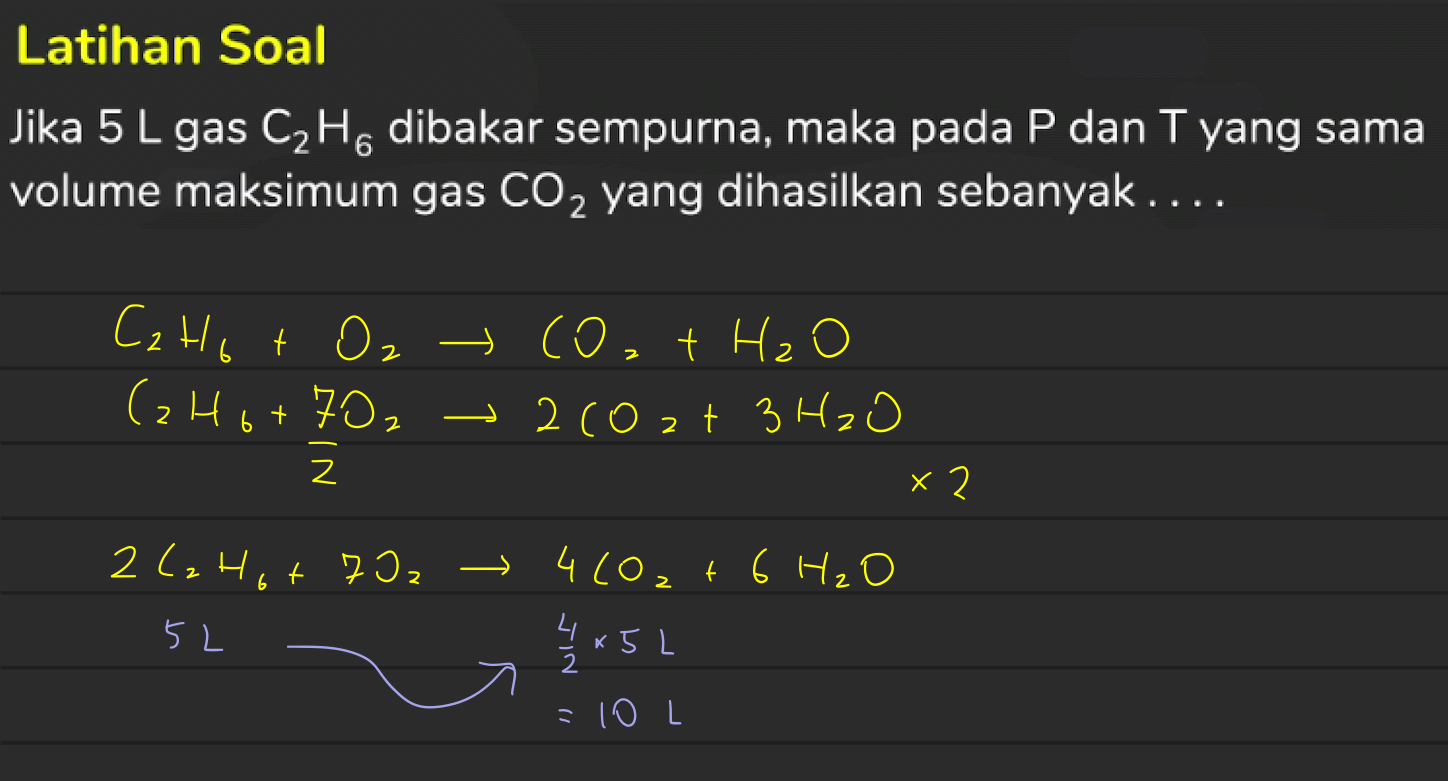 Latihan Soal
Jika 5 L gas C₂H₆ dibakar sempurna, maka pada P dan T yang sama
volume maksimum gas CO₂ yang dihasilkan sebanyak . . . .
C₂H₆ + O₂ → CO₂ + H₂O
C₂H₆ + 7/2 O₂ → 2CO₂ + 3H₂O
× 2
2C₂H₆ + 7O₂ → 4CO₂ + 6H₂O
5 L 4/2 × 5 L
= 10 L